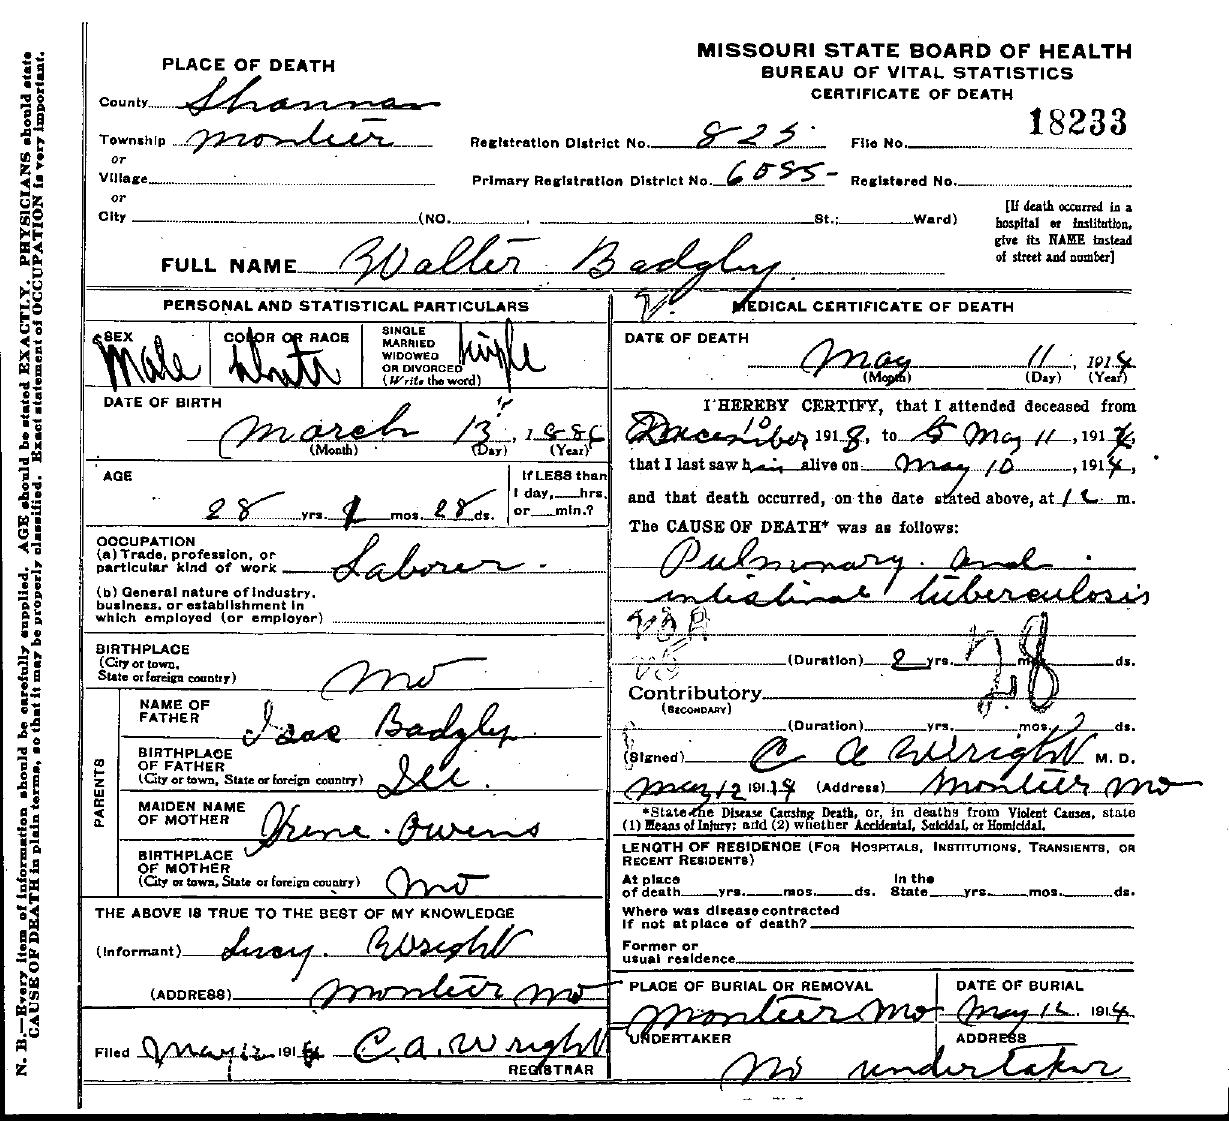 MISSOURI STATE BOARD OF HEALTH
BUREAU OF VITAL STATISTICS
CERTIFICATE OF DEATH
18233
PLACE OF DEATH
County Shannon
Township Montier
or
Village
or
City (NO. St.; Ward)
Registration District No. 825 File No.
Primary Registration District No. 6085 Registered No.
[If death occurred in a
hospital or institution,
give its NAME instead
of street and number]
FULL NAME Walter Badgley
PERSONAL AND STATISTICAL PARTICULARS
SEX Male
COLOR OR RACE White
SINGLE
MARRIED
WIDOWED
OR DIVORCED
(Write the word) single
DATE OF BIRTH
March 13, 1886
(Month) (Day) (Year)
AGE
28 yrs. 1 mos. 28 ds.
If LESS than
1 day, hrs.
or min.?
OCCUPATION
(a) Trade, profession, or
particular kind of work Laborer.
(b) General nature of industry,
business, or establishment in
which employed (or employer)
BIRTHPLACE
(City or town,
State or foreign country) Mo
PARENTS
NAME OF
FATHER Isac Badgley
BIRTHPLACE
OF FATHER
(City or town, State or foreign country) Ill
MAIDEN NAME
OF MOTHER Irene Owens
BIRTHPLACE
OF MOTHER
(City or town, State or foreign country) Mo
THE ABOVE IS TRUE TO THE BEST OF MY KNOWLEDGE
(Informant) Lucy. Wright
(ADDRESS) Montier Mo
Filed May 12 1914 C. A. Wright
REGISTRAR
MEDICAL CERTIFICATE OF DEATH
DATE OF DEATH
May 11, 1914
(Month) (Day) (Year)
I HEREBY CERTIFY, that I attended deceased from
December 10 191, to May 11, 191
that I last saw him alive on May 10, 1914,
and that death occurred, on the date stated above, at 12 m.
The CAUSE OF DEATH* was as follows:
Pulmonary and
intistinal tuberculosis
(Duration) 2 yrs. mos. ds.
28
Contributory
(SECONDARY)
(Duration) yrs. mos. ds.
(Signed) C A Wright M. D.
May 12 1914 (Address) Montier Mo
*State the Disease Causing Death, or, in deaths from Violent Causes, state
(1) Means of Injury; and (2) whether Accidental, Suicidal, or Homicidal.
LENGTH OF RESIDENCE (FOR HOSPITALS, INSTITUTIONS, TRANSIENTS, OR
RECENT RESIDENTS)
At place In the
of death yrs. mos. ds. State yrs. mos. ds.
Where was disease contracted
if not at place of death?
Former or
usual residence
PLACE OF BURIAL OR REMOVAL DATE OF BURIAL
Montier Mo May 12 1914
UNDERTAKER ADDRESS
No undertaker
N. B.—Every item of information should be carefully supplied. AGE should be stated EXACTLY. PHYSICIANS should state
CAUSE OF DEATH in plain terms, so that it may be properly classified. Exact statement of OCCUPATION is very important.